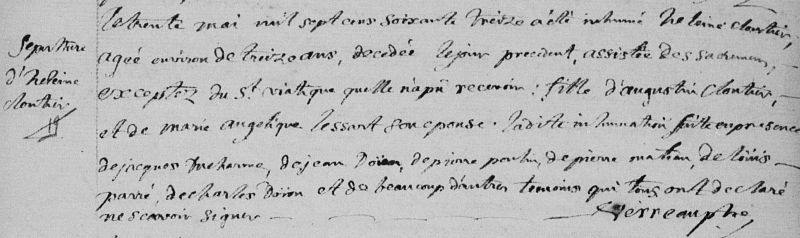 Sepulture
d'heleine
cloutier
le trente mai mil sept cens soixante treize a été inhumé heleine cloutier,
ageé environ de treize ans, decedée le jour precedent, assistée des sacremens,
exceptez du St viatique quelle n'a pû recevoir : fille d'augustin cloutier,
et de marie angelique lessart son epouse. ladite inhumation faite en presence
de jacques Ducharme, de jean Doion, de pierre poulin, de pierre matieu, de loüis
parré, de charles Doion et de beaucoup d'autres temoins qui tous ont declaré
ne scavoir signer
Verreau ptre